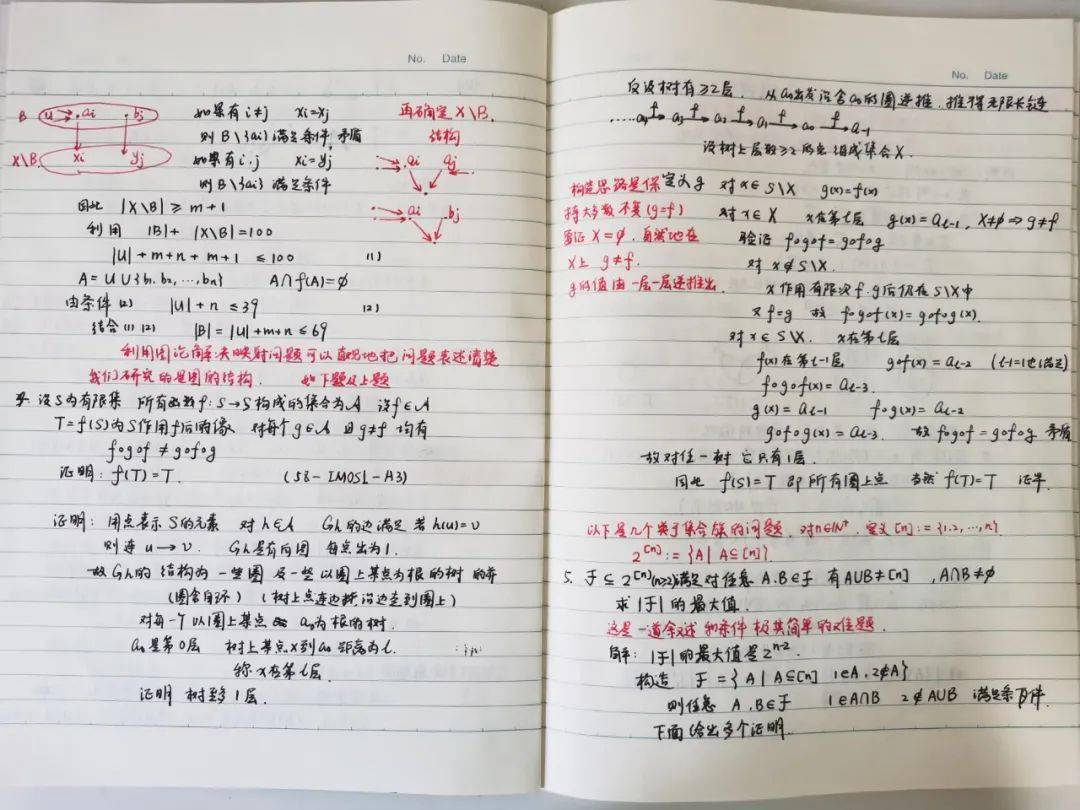 No. Date
B u ai bj 如果有 i≠j xi=xj 再确定 X\B
则 B\{ai} 满足条件, 矛盾 结构
X\B xi yj 如果有 i.j xi=yj ai aj
则 B\{ai} 满足条件
因此 |X\B| ≥ m+1 ai bj
利用 |B|+ |X\B|=100
|U|+m+n+m+1 ≤100 (1)
A=U∪{b1, b2, …, bn} A∩f(A)=∅
由条件(2) |U|+n ≤39 (2)
结合(1)(2) |B|=|U|+m+n ≤69
利用图论角度 映射问题可以直观地把问题表述清楚
我们研究的是图的结构. 如下题及上题
4. 设S为有限集 所有函数f:S→S构成的集合为A 设f∈A
T=f(S)为S作用f后的像 对每个g∈A 且g≠f 均有
f∘g∘f ≠ g∘f∘g
证明: f(T)=T. (58-IMOSL-A3)
证明: 用点表示S的元素 对h∈A Gh的边满足 若h(u)=v
则连 u→v. Gh是有向图 每点出为1.
故Gh的 结构为一些圈 及一些以圈上某点为根的树的并
(圈含自环) (树上点连边 沿边走到圈上)
对每一个以圈上某点 a0为根的树.
a0是第0层 树上某点x到a0 距离为l.
称x在第l层
证明 树至多1层.
No. Date
反设树有≥2层. 从a0出发沿含a0的圈逆推, 推得无限长链
……a4 f→ a3 f→ a2 f→ a1 f→ a0 f→ a-1
设树上层数≥2的点组成集合X.
构造思路是保 定义g 对x∈S\X g(x)=f(x)
持大多数不变(g=f) 对x∈X x在第l层 g(x)=al-1, X≠∅ ⇒ g≠f
要证X=∅, 自然地在 验证 f∘g∘f=g∘f∘g
X上 g≠f. 对x∉S\X.
g的值由一层一层逆推出. x作用有限次f.g后仍在S\X中
又f=g 故 f∘g∘f(x)=g∘f∘g(x).
对x∈S\X. x在第l层
f(x)在第l-1层 g∘f(x)=al-2 (l-1=1也满足)
f∘g∘f(x)=al-3.
g(x)=al-1 f∘g(x)=al-2
g∘f∘g(x)=al-3. 故f∘g∘f=g∘f∘g 矛盾
故对任一树 它只有1层.
因此 f(S)=T 即所有圈上点 当然f(T)=T 证毕.
以下是几个关于集合族的问题, 对n∈N+, 定义[n]:={1,2,…,n}
2^[n]:={A|A⊆[n]}
5. F⊆2^[n](n≥2)满足对任意A.B∈F 有A∪B≠[n], A∩B≠∅
求|F|的最大值.
这是一道叙述和条件极其简单的难题.
解: |F|的最大值是2^n-2
构造 F={A|A⊆[n] 1∈A, 2∉A}
则任意 A.B∈F 1∈A∩B 2∉A∪B 满足条件.
下面给出多个证明.